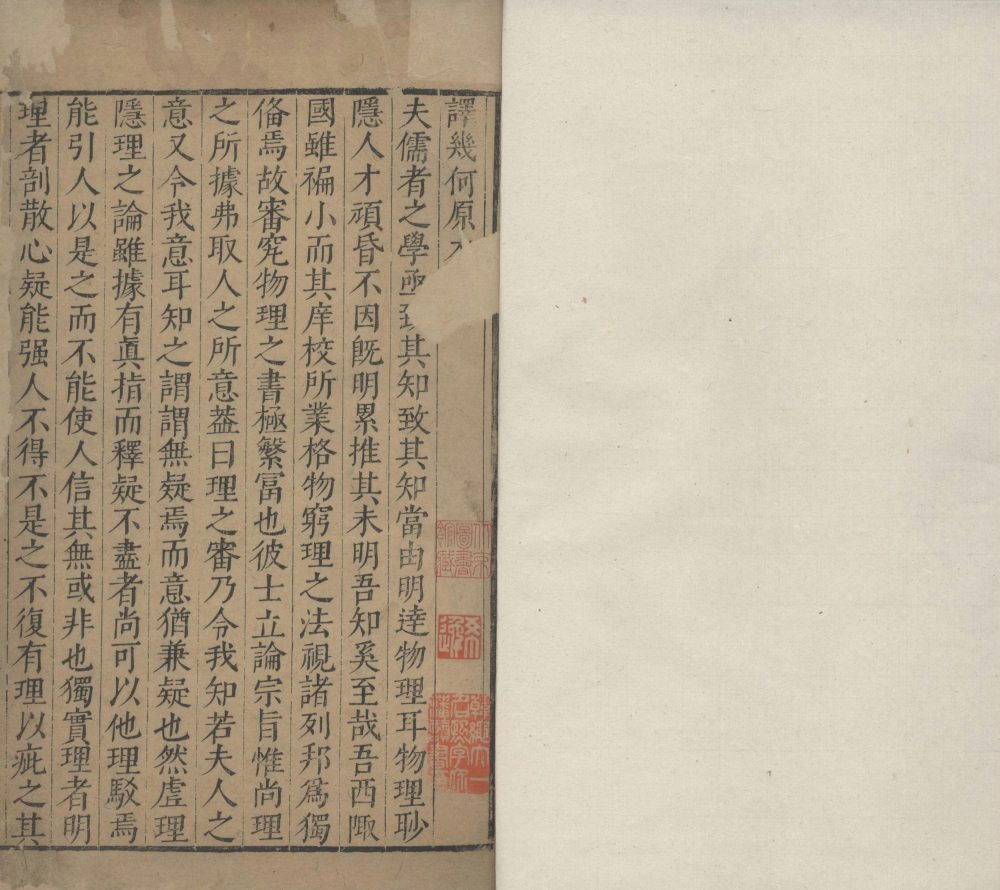 譯幾何原
夫儒者之學亟致其知致其知當由明逹物理耳物理耹
隱人才頑昏不因旣明累推其未明吾知奚至哉吾西陬
國雖褊小而其庠校所業格物窮理之法視諸列邦爲獨
偹焉故審究物理之書極繁冨也彼士立論宗旨惟尚理
之所據弗取人之所意葢曰理之審乃令我知若夫人之
意又令我意耳知之謂謂無疑焉而意猶兼疑也然虗理
隱理之論雖據有眞指而釋疑不盡者尚可以他理駁焉
能引人以是之而不能使人信其無或非也獨實理者明
理者剖散心疑能强人不得不是之不復有理以疵之其